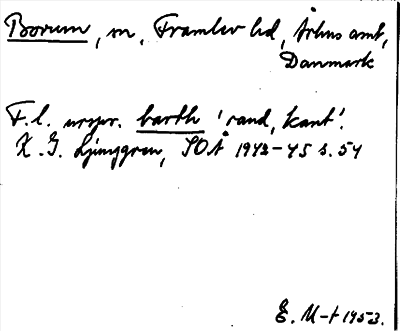 Borum, sn, Framlev hd, Århus amt,
Danmark
F.l. urspr. barth 'rand, kant'.
K. G. Ljunggren, SOÅ 1943-45 s. 54
E. M-t 1953.